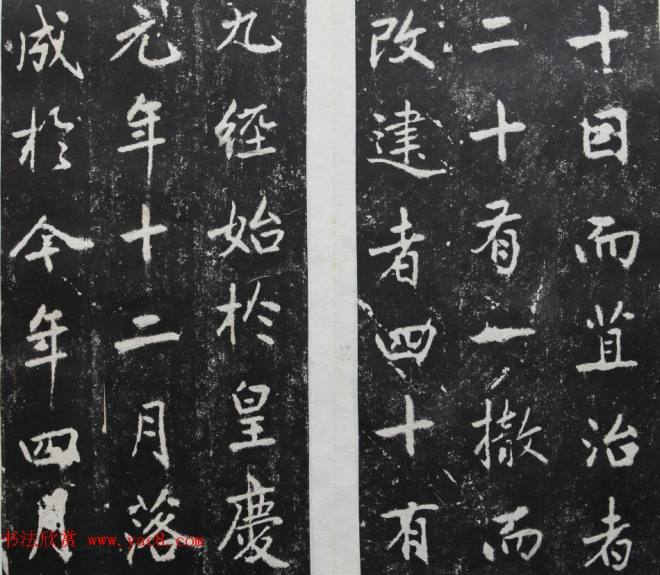 十因而苴治者
二十有一撤而
改建者四十有
九経始於皇慶
元年十二月落
成於今年四月
书法欣赏 www.yac8.com